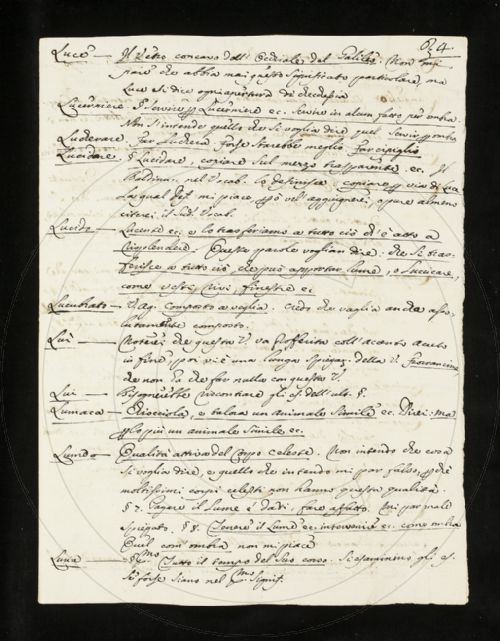 Luce — Il Vetro concavo dell' Occhiale del Galileo. Non mi
pare che abbia mai questo significato particolare, ma
Luce si dice ogni apertura di checchesia
Lucerniere §. Servire Lucerniere ec. Servire in alcun fatto per ombra.
Non s'intende quello che si voglia dire quel Servir
Lucherare. Far Lucherà forse starebbe meglio far cipiglio
Lucidare. § Lucidare, copiare sul mezzo trasparente ec. Il
Baldinucci nel Vocab. lo definisce copiare
La qual def. mi piace e vi' aggiugnerei, o pure almeno
citerei il sud. Vocab.
Lucido — Lucente ec. e lo trasferiamo a tutto ciò ch' è atto a
risplendere. Queste parole voglian dire: che si tras-
ferisce a tutto ciò che può apportar lume, o luccicare,
come vetri, rivi, finestre ec
Lucubrato — V. Ag. Composto a veglia. credo che vaglia anche asso-
lutamente composto.
Lui — Noterei che questa V. va profferita coll' accento acuto
in fine, poi vi è una lunga spiegaz. della V. fiorrancino
che non ha che far nulla con questa V.
Lui — Bisognerebbe riscontrare gli es. dell' ult. §.
Lumaca — Chiocciola, e talora un animale simile ec. Direi: ma
più un animale simile ec.
Lume — Qualità attiva del Corpo celeste. Non intendo che cosa
si voglia dire, e quello che intendo mi par falso,
moltissimi corpi celesti non hanno questa qualità.
§ 7. Pagare il Lume e dadi. fare affatto. Mi par male
spiegato. § 8. Tenere il Lume ec. intervenire ec. come ombra
Quel com' ombra non mi piace
Luna — Tutto il tempo del suo corso. Si esaminino gli es.
se forse siano nel signif.